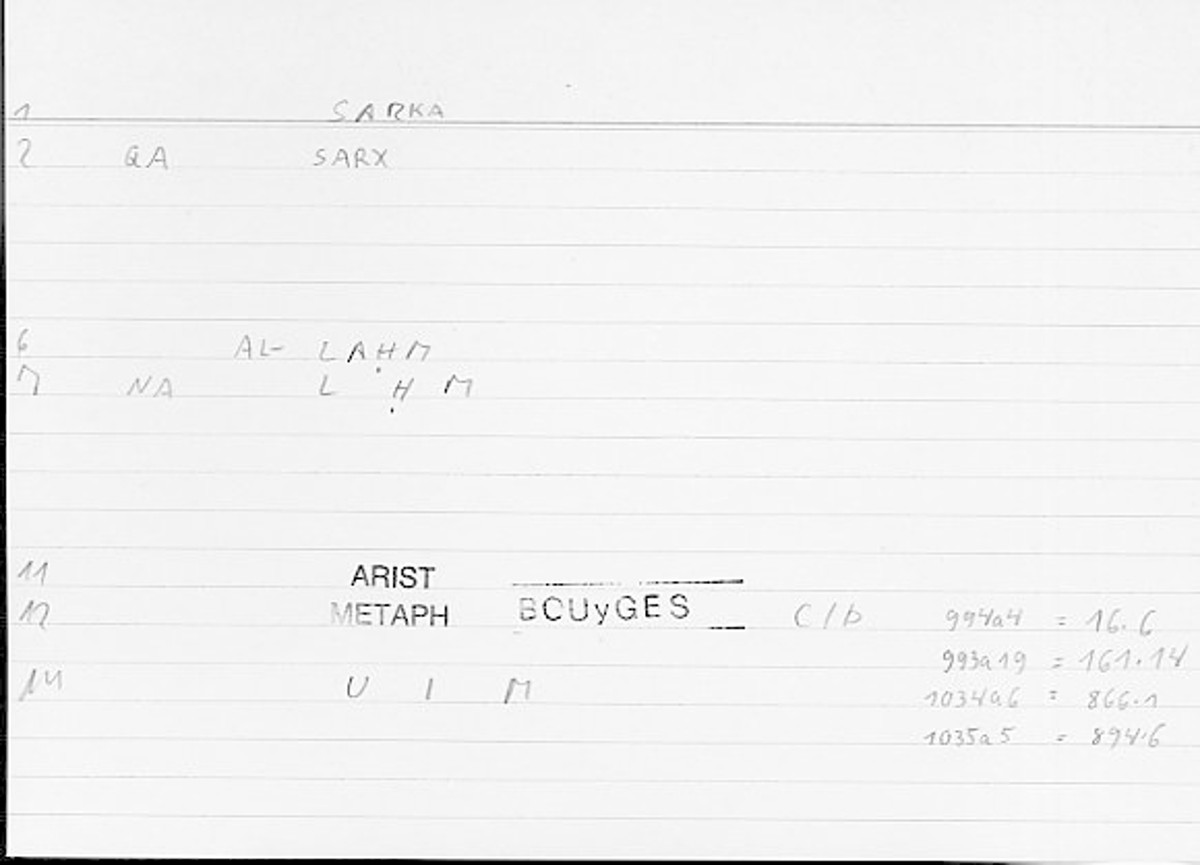 1 SARKA
2 QA SARX
6 AL- LAḤM
7 NA L Ḥ M
11 ARIST
12 METAPH BCUyGES C/b 994a4 = 16.6
993a19 = 161.14
14 U I M 1034a6 = 866.1
1035a5 = 894.6